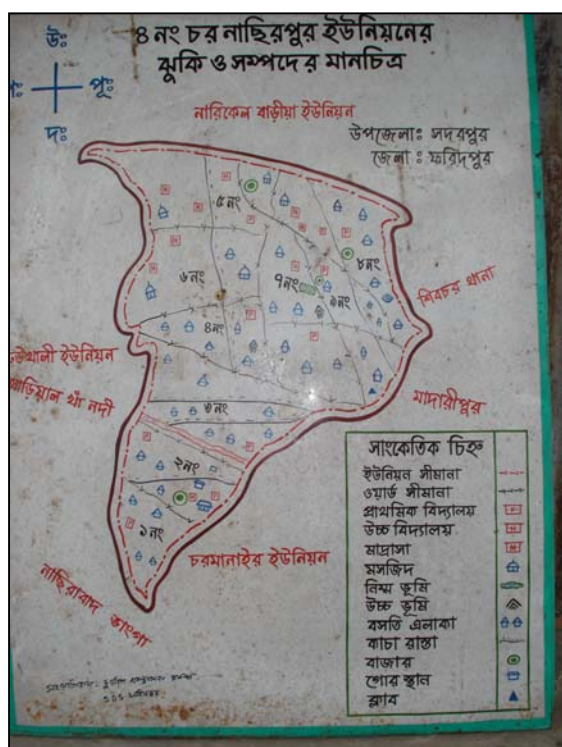 উঃ
পূঃ
দঃ
৪ নং চর নাছিরপুর ইউনিয়নের
ঝুকি ও সম্পদের মানচিত্র
নারিকেল বাড়ীয়া ইউনিয়ন
উপজেলাঃ সদরপুর
জেলাঃ ফরিদপুর
৫ নং
৮ নং
৬ নং
৭ নং
৯ নং
শিবচর থানা
৪ নং
ইউনিয়ন
খাঁ নদী
মাদারীপুর
৩ নং
২ নং
১ নং
চরমানাইর ইউনিয়ন
নাছিরাবাদ ভাংগা
সাংকেতিক চিহ্ন
ইউনিয়ন সীমানা
ওয়ার্ড সীমানা
প্রাথমিক বিদ্যালয়
উচ্চ বিদ্যালয়
মাদ্রাসা
মসজিদ
নিম্ম ভূমি
উচ্চ ভূমি
বসতি এলাকা
কাচা রাস্তা
বাজার
গোর স্থান
ক্লাব